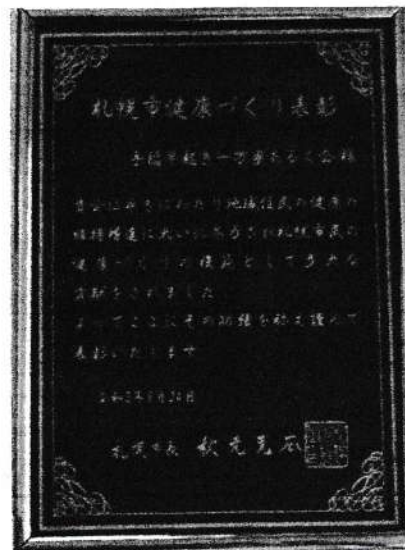 札幌市健康づくり表彰
手稲早起き一万歩あるく会 様
貴会は永きにわたり地域住民の健康の
維持増進に大いに努力され札幌市民の
健康づくりの推進として多大な
貢献をされました
よってここにその功績を称え謹んで
表彰いたします
札幌市長 秋元克広